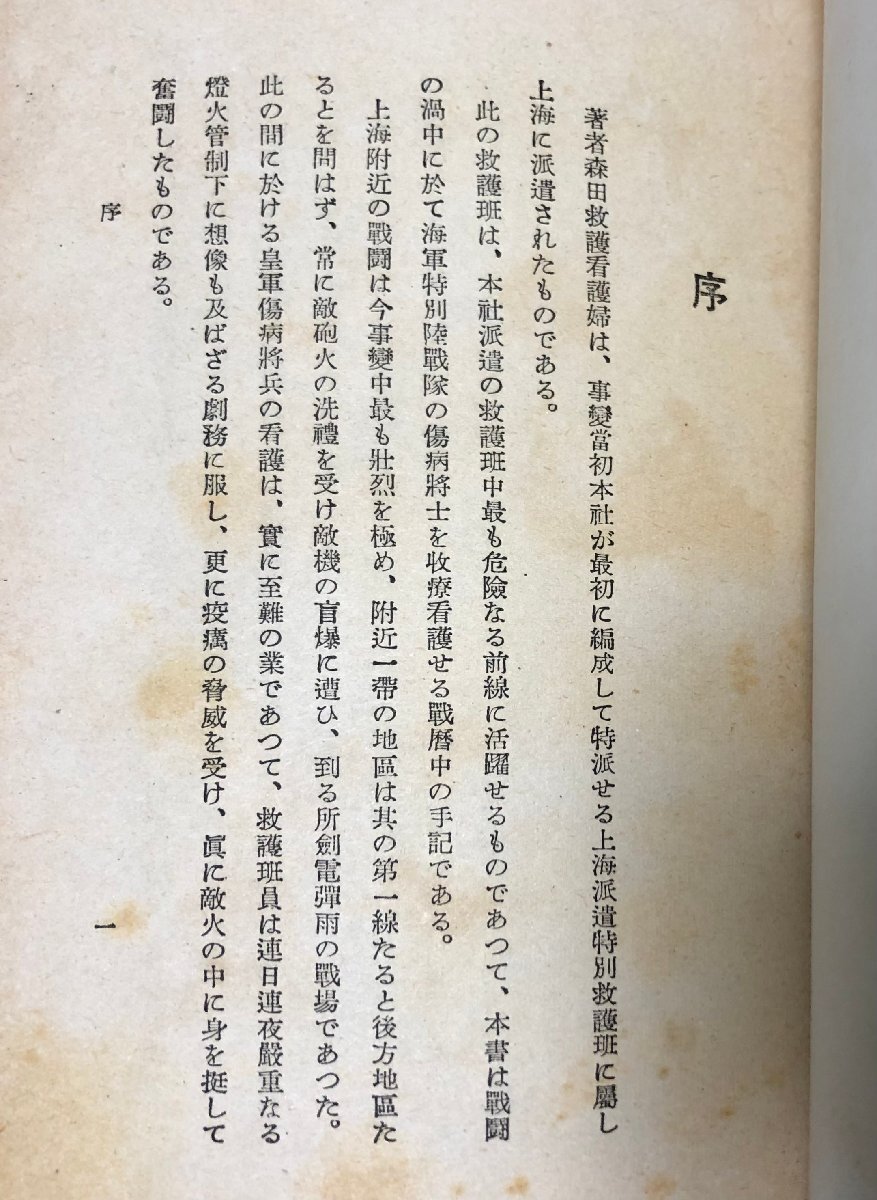 序
著者森田救護看護婦は、事變當初本社が最初に編成して特派せる上海派遣特別救護班に屬し
上海に派遣されたものである。
此の救護班は、本社派遣の救護班中最も危險なる前線に活躍せるものであつて、本書は戰鬪
の渦中に於て海軍特別陸戰隊の傷病將士を收療看護せる戰曆中の手記である。
上海附近の戰鬪は今事變中最も壯烈を極め、附近一帶の地區は其の第一線たると後方地區た
るとを問はず、常に敵砲火の洗禮を受け敵機の盲爆に遭ひ、到る所劍電彈雨の戰場であつた。
此の間に於ける皇軍傷病將兵の看護は、實に至難の業であつて、救護班員は連日連夜嚴重なる
燈火管制下に想像も及ばざる劇務に服し、更に疫癘の脅威を受け、眞に敵火の中に身を挺して
奮鬪したものである。
序
一